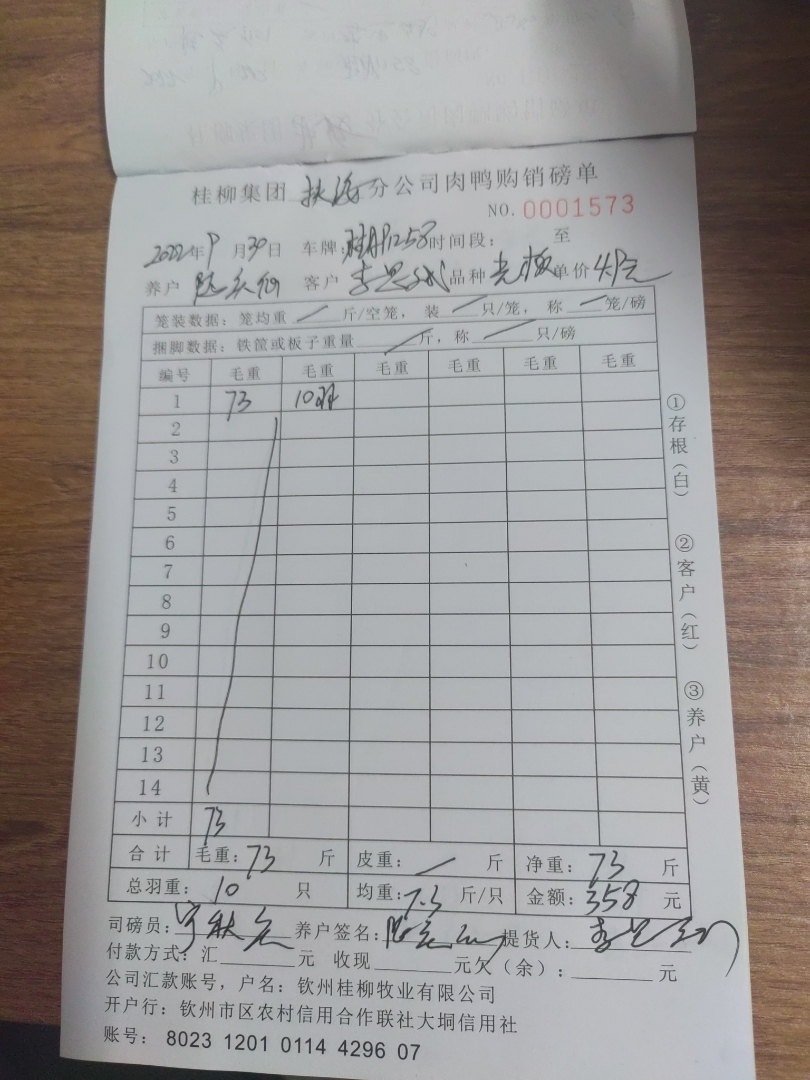 桂柳集团 分公司肉鸭购销磅单
NO. 0001573
2022年9月30日 车牌: 时间段: 至
养户 客户 品种 单价 4.9元
笼装数据: 笼均重 斤/空笼, 装 只/笼, 称 笼/磅
捆脚数据: 铁筐或板子重量 斤, 称 只/磅
编号 毛重 毛重 毛重 毛重 毛重 毛重
1 73 10羽
2
3
4
5
6
7
8
9
10
11
12
13
14
小计 73
合计 毛重: 73 斤 皮重: 斤 净重: 73 斤
总羽重: 10 只 均重: 7.3 斤/只 金额: 358 元
司磅员: 养户签名: 提货人:
付款方式: 汇 元 收现 元欠(余): 元
公司汇款账号, 户名: 钦州桂柳牧业有限公司
开户行: 钦州市区农村信用合作联社大垌信用社
账号: 8023 1201 0114 4296 07
①存根(白)
②客户(红)
③养户(黄)